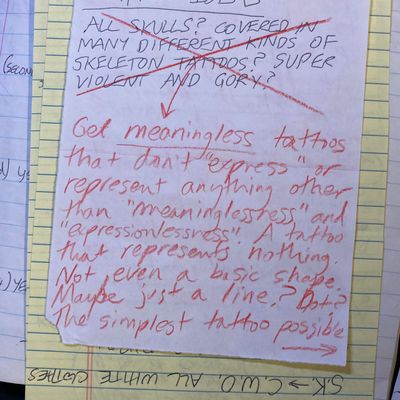 ALL SKULLS? COVERED IN
MANY DIFFERENT KINDS OF
SKELETON TATTOOS? SUPER
VIOLENT AND GORY?
Get meaningless tattoos
that don't "express" or
represent anything other
than "meaninglessness" and
"expressionlessness". A tattoo
that represents nothing.
Not even a basic shape.
Maybe just a line? Dot?
The simplest tattoo possible
→
S.K → C.W.O. ALL WHITE CLOTHES